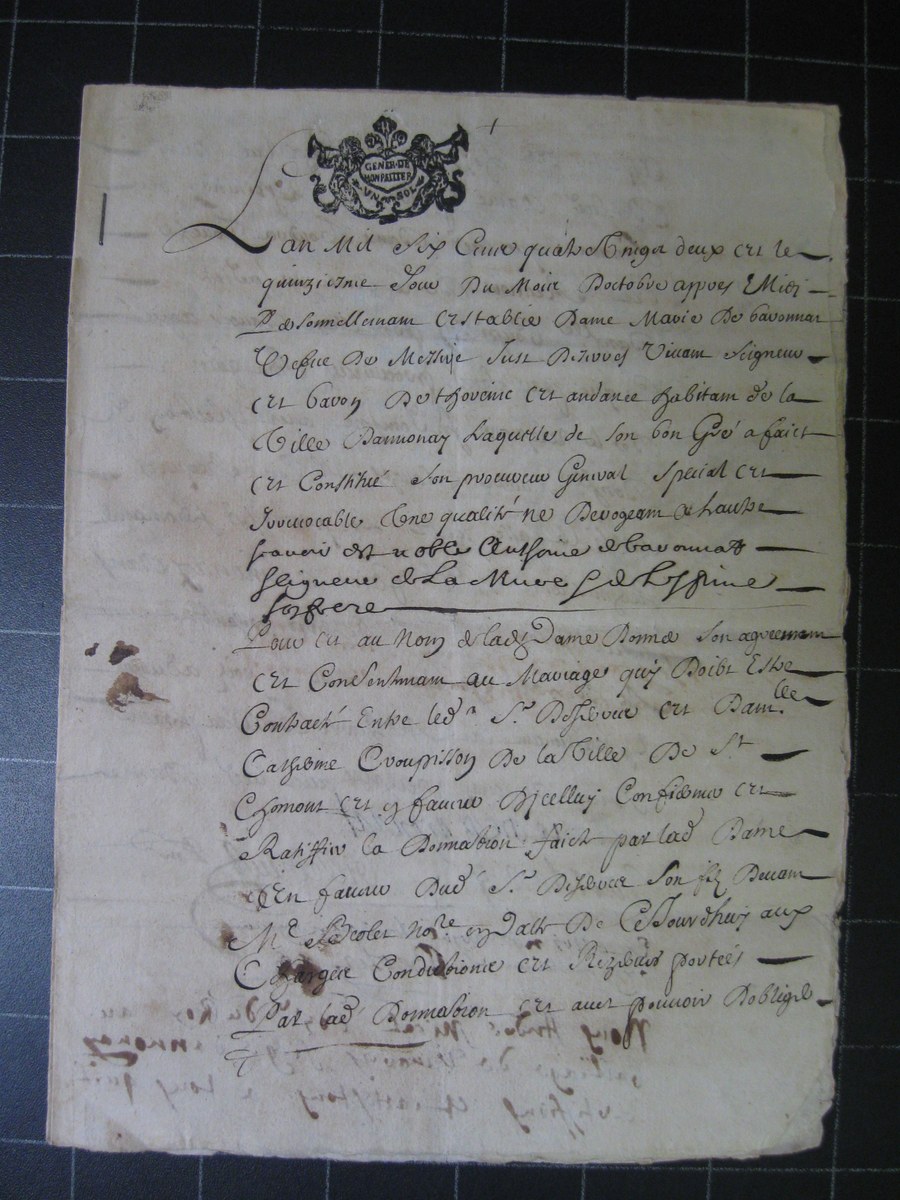 GENER·DE
MONPALIER
UN SOL
L'an Mil Six Cens quatre Vingt deux et le
quinziesme Jour Du Mois Doctobre appres Midi
P. establie Dame Marie De baronnat
Vefve De Messire Just De Seigneur
et baron De thorenc et andance habitant de la
Ville Dannonay Laquelle de son bon Gré a faict
et Constitué son procureur General Special et
Irrevocable Une qualité ne Derogeant a Lautre
scavoir est noble Anthoine de baronnat
seigneur de La Mure
son frere
Pour et au Nom de lade Dame Donner son agreement
et Consentement au Mariage quy Doibt Estre
Contracté Entre led Sr et Damlle
Catherine Croupisson De la Ville De St
Chomont et en faveur Dicelluy Confirmer et
Ratiffier la Donnation faict par lad Dame
En faveur Dud Sr son filz Devant
Me nore en datte De Cejourdhuy aux
Charges Conditions et Rezerves portées
Par lad Donnation et avec pouvoir Dobliger